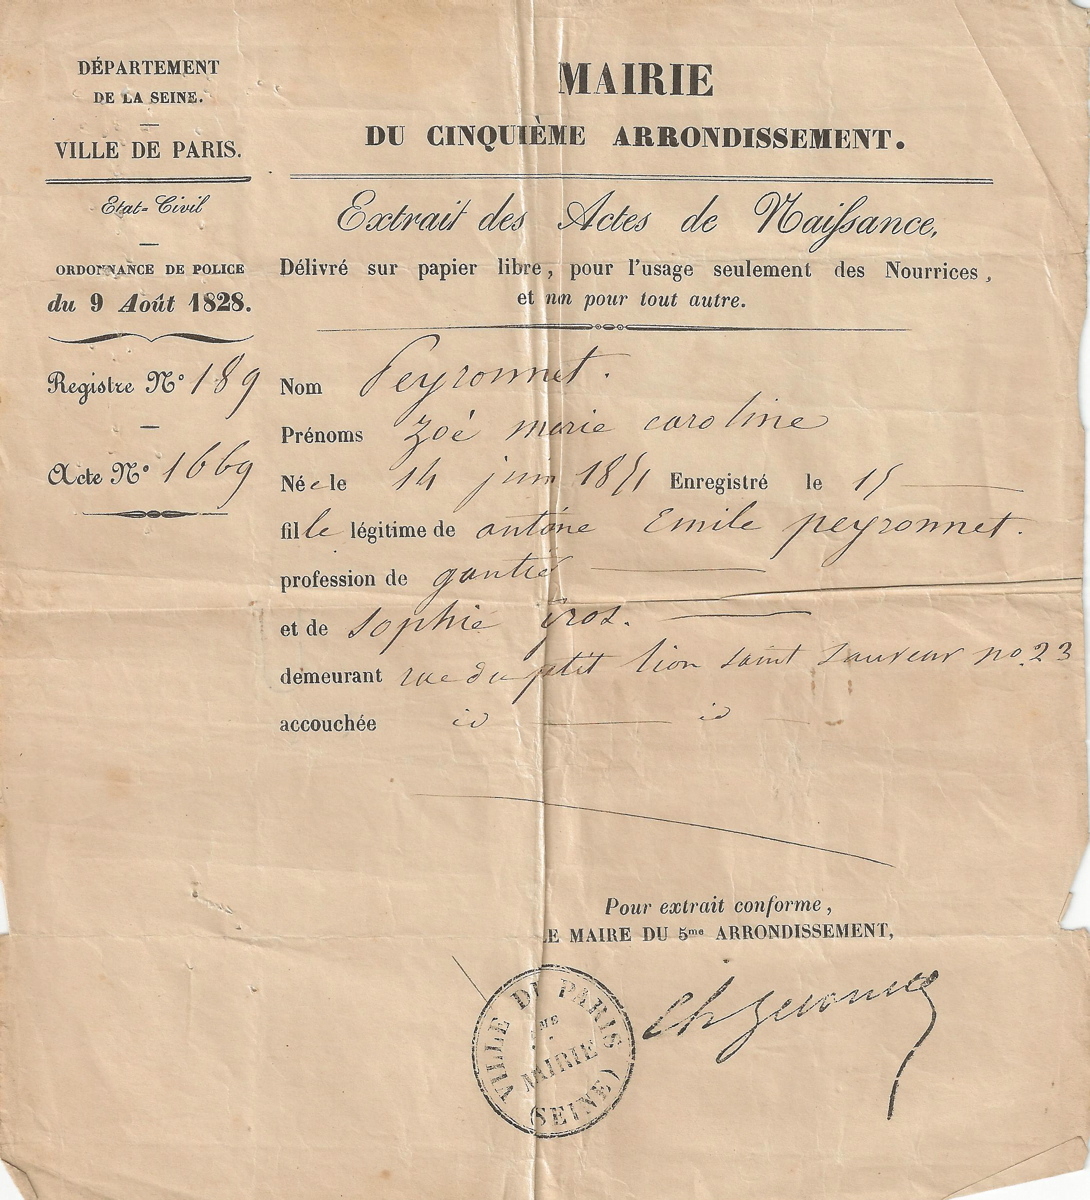 DÉPARTEMENT
DE LA SEINE.
VILLE DE PARIS.
Etat-Civil
ORDONNANCE DE POLICE
du 9 Août 1828.
Registre N° 189
Acte N° 1669
MAIRIE
DU CINQUIÈME ARRONDISSEMENT.
Extrait des Actes de Naissance,
Délivré sur papier libre, pour l'usage seulement des Nourrices,
et non pour tout autre.
Nom Peyronnet.
Prénoms Zoé marie caroline
Née le 14 juin 1851 Enregistré le 15
fille légitime de antoine Emile peyronnet.
profession de gantié
et de sophie gros.
demeurant rue du ptit lion saint sauveur no. 23
accouchée id id
Pour extrait conforme,
LE MAIRE DU 5me ARRONDISSEMENT,
VILLE DE PARIS
5ME
MAIRIE
(SEINE)